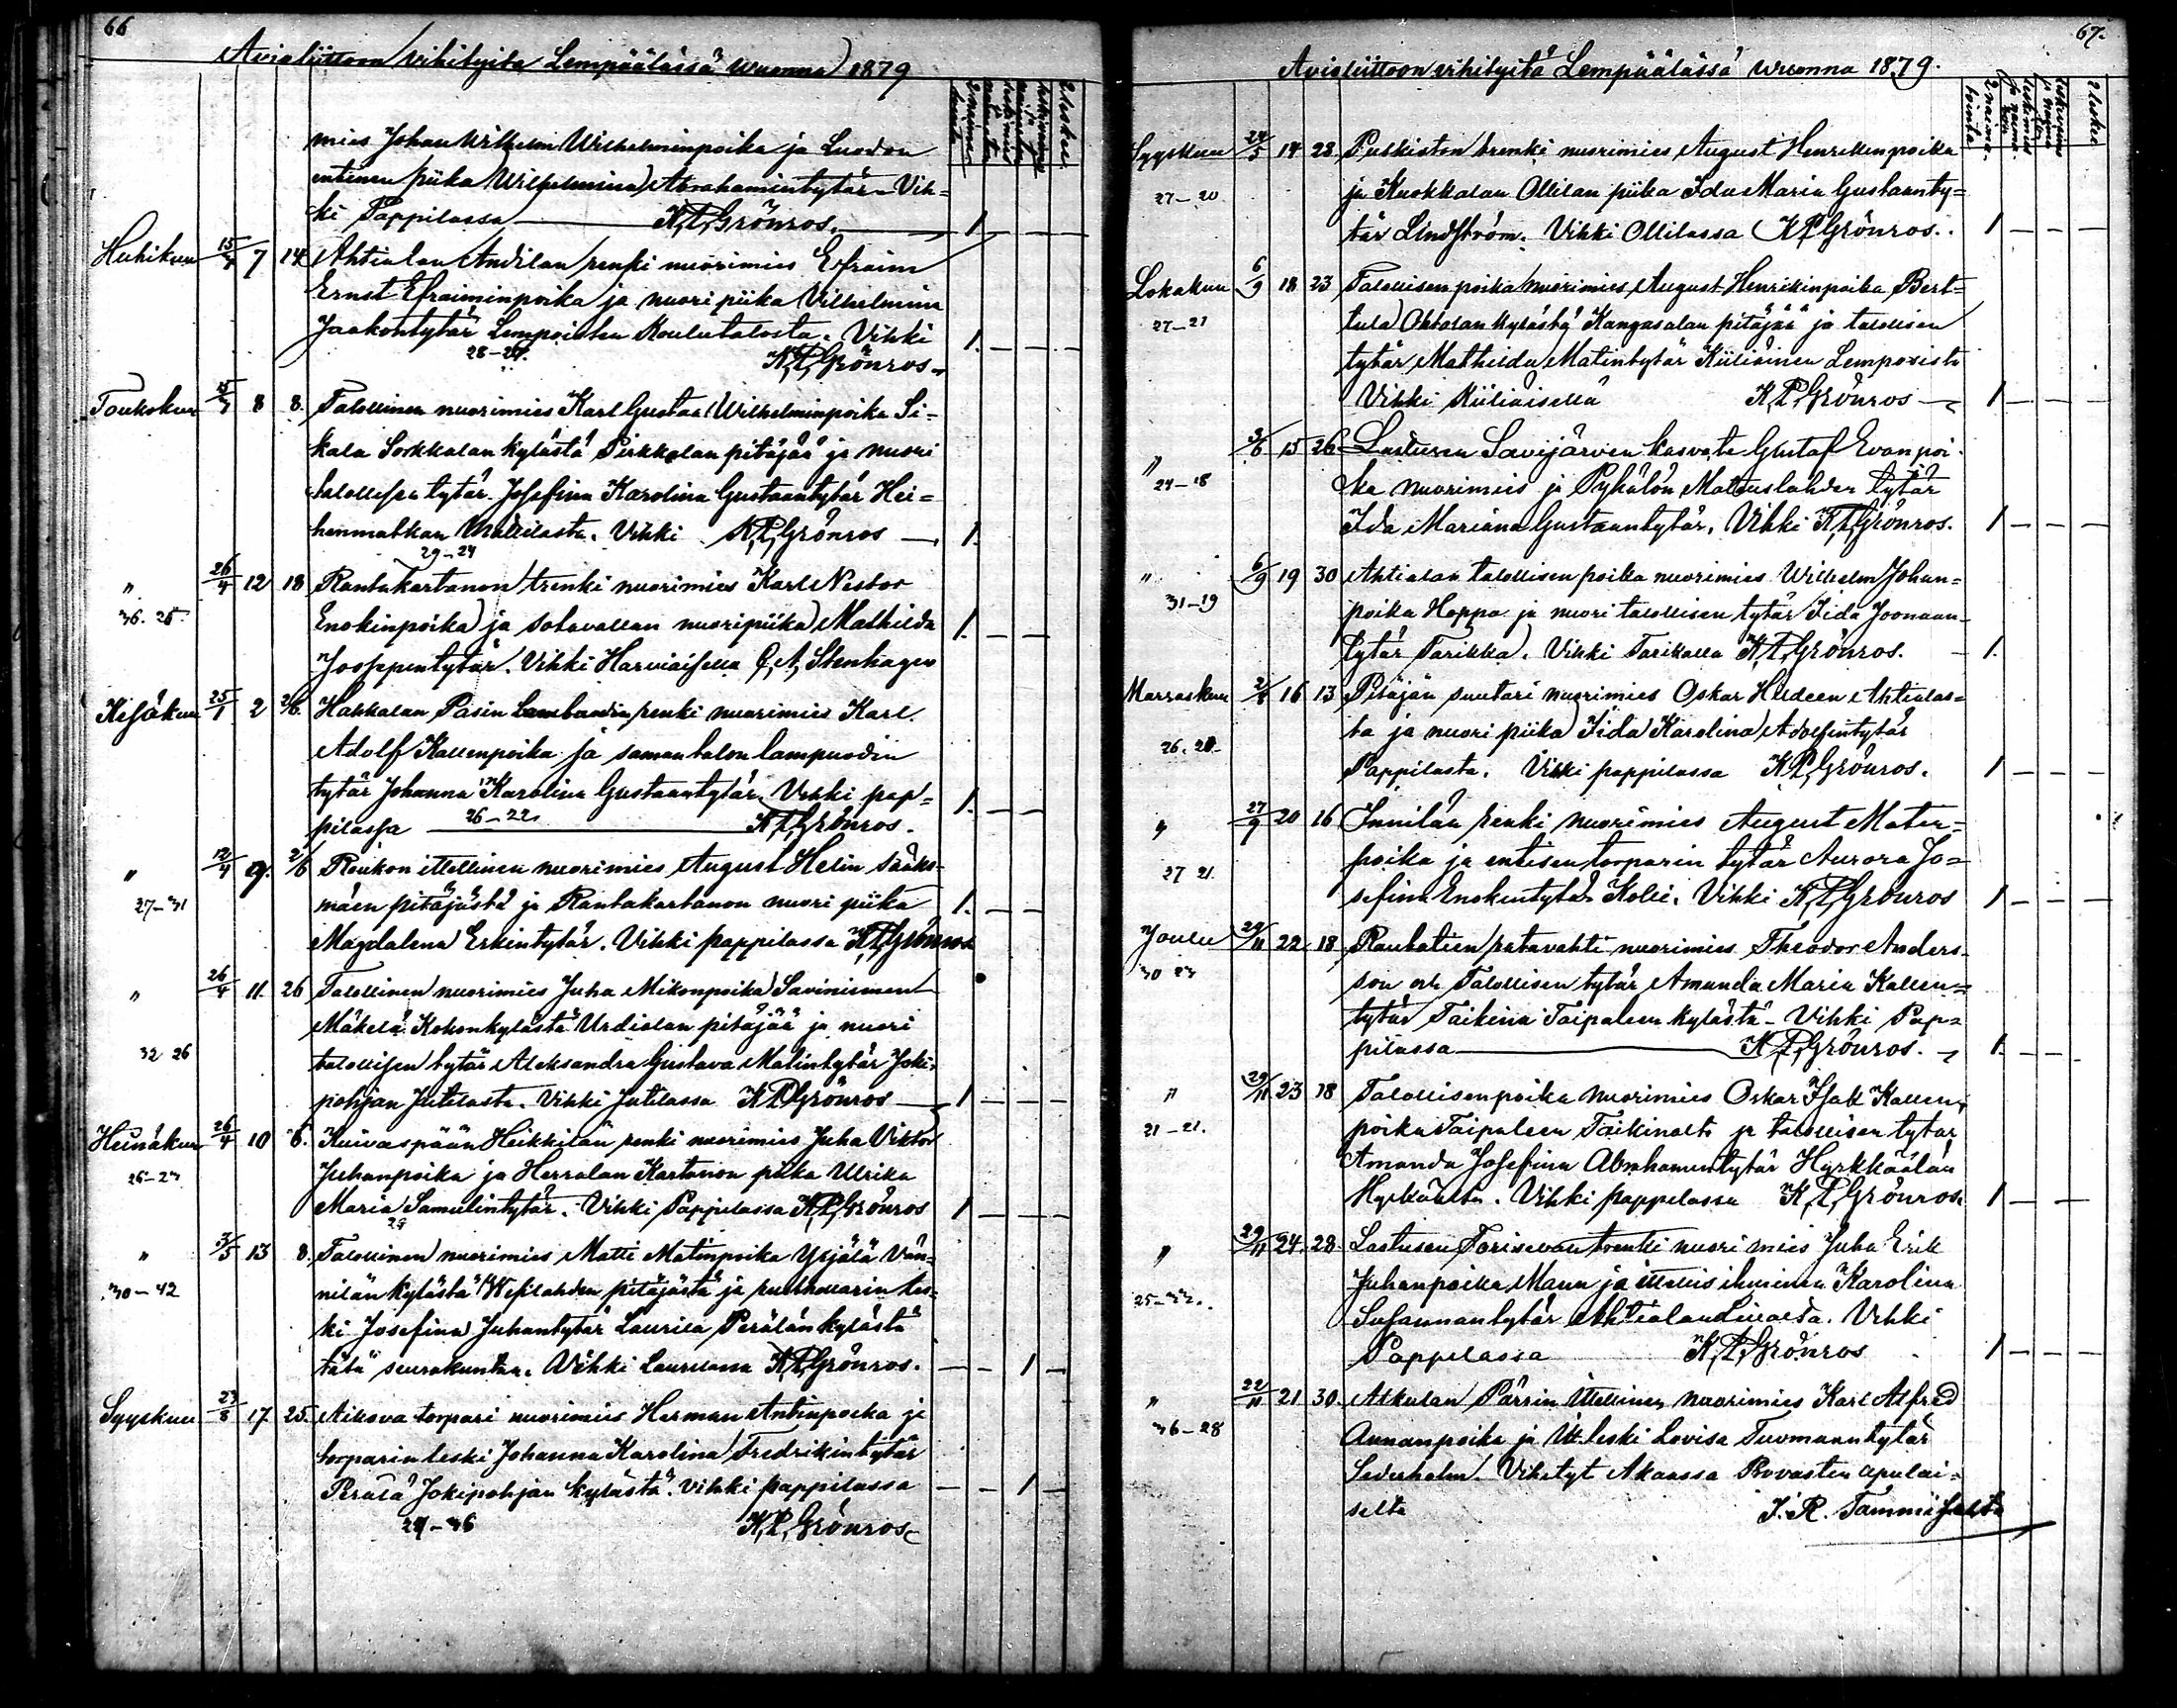 66
Avioliittoon vihityitä Lempäälässä wuonna 1879
mies Johan Wilhelm Wilhelminpoika ja Luodon
entinen piika Wilhelmina Abrahamintytär Vih-
ki Pappilassa K,P,Grönros. 1
Huhtikuu 15/4 7 14 Ahtialan Andilan renki nuorimies Efraim
Ernst Efraiminpoika ja nuori piika Vilhelmina
Jaakontytär Lempoisten Koulutalosta. Vihki 1.
28-27. K,P,Grönros.
Toukokuu 8 8. Talollinen nuorimies Karl Gustaa Wilhelminpoika Si-
kala Sorkkalan kylästä Pirkkalan pitäjää ja nuori
talollisen tytär Josefina Karolina Gustaantytär Hei-
henmatkan Vihki K,P,Grönros 1.
29-24
" 26/4 12 18 Rantakartanon trenki nuorimies Karl Nestor
36. 25. Enokinpoika ja Sotavallan nuoripiika Mathilda 1.
Joosppentytär. Vihki Harviaisella Stenhagen
Kesäkuu 25/1 2 2/6. Hakkalan Pasin renki nuorimies Karl
Adolf Kallenpoika ja saman talon lampuodin
tytär Johanna Karolina Gustaantytär. Vihki pap- 1.
pilassa 26-22. K,P,Grönros.
" 12/4 9. 2/6 Roukon itellinen nuorimies August Helin sääks-
27-31 mäen pitäjästä ja Rantakartanon nuori piika 1.
Magdalena Erkintytär. Vihki pappilassa K,P,Grönros
" 26/4 11. 26 Talollinen nuorimies Juha Mikonpoika Savinismen
Mäkelä Kohonkylästä Urdialan pitäjää ja nuori
32 26 talollisen tytär Aleksandra Gustava Matintytär Joki-
pohjan Jutilasta. Vihki Jutilassa K.P.Grönros 1
Heinäkuu 26/4 10 6. Kuivaspään Heikkilän renki nuorimies Juha Viktor
26-23 Juhanpoika ja Herralan Kartanon piika Ulrika
Maria Samulintytär. Vihki Pappilassa K,P,Grönros 1
" 3/5 13 8. Talollinen nuorimies Matti Matinpoika Yrjälä Vän-
30-42 nilän kylästä Wesilahden pitäjästä ja les-
ki Josefina Juhantytär Laurila Perälän kylästä
tätä seurakuntaa. Vihki Laurilassa K,P,Grönros. 1
Syyskuu 23/8 17 25. Aikova torpari nuorimies Herman Antinpoika ja
torparin leski Johanna Karolina Fredrikintytär
Perälä Jokipohjan kylästä. Vihki pappilassa 1
29-36 K,P,Grönros
67.
Avioliittoon vihityitä Lempäälässä wuonna 1879.
Syyskuu 24/5 14 28 Pulkiston trenki nuorimies August Henrikinpoika
27-20 ja Kuokkalan Ollilan piika Ida Maria Gustaanty-
tär Lindström. Vihki Ollilassa K,P,Grönros. 1
Lokakuu 6/9 18 23 Talollisen poika nuorimies August Henrikinpoika Bert-
27-21 tula Ohtolan kylästä Kangasalan pitäjää ja talollisen
tytär Mathilda Matintytär Kiiliäinen Lempoisista
Vihki Kiiliäisellä K,P,Grönros 1
" 3/6 15 26 Lastusen Savijärven kasvate Gustaf Evanpoi-
24-18 ka nuorimies ja Pyhälön Mattuslahden tytär
Ida Mariana Gustaantytär. Vihki K,P,Grönros. 1
" 6/9 19 30 Ahtialan talollisen poika nuorimies Wilhelm Johan-
31-19 poika Hoppo ja nuori talollisen tytär Iida Joonaan-
tytär Tarikka. Vihki Tarikalla K,P,Grönros. 1.
Marraskuu 2/8 16 13 Pitäjän suutari nuorimies Oskar Hildeen Ahtialas-
26.20. ta ja nuori piika Iida Karolina Adolfintytär
Pappilasta. Vihki pappilassa K,P,Grönros. 1
" 27/9 20 16 Innilän renki nuorimies August Mater-
27 21. poika ja entisen torparin tytär Aurora Jo-
sefina Enokintytär Kolli. Vihki K,P,Grönros 1
Joulu 29/11 22 18 Rautatien ratavahti nuorimies Theodor Anders-
30 23 son och Talollisen tytär Amanda Maria Kallen-
tytär Taikina Taipaleen kylästä. Vihki Pap-
pilassa K,P,Grönros. 1.
" 29/11 23 18 Talollisen poika nuorimies Oskar Isak Kallen-
21-21. poika Taipaleen Taikinalta ja talollisen tytär
Amanda Josefina Abrahamintytär Hyrkkäälän
Vihki pappilassa K,P,Grönros. 1
" 29/11 24 28 Lastusen trenki nuori mies Juha Erik
Juhanpoika Mann ja itellis ihminen Karolina
Susannantytär Ahtialan Vihki
Pappilassa K,P,Grönros 1
" 22/11 21 30. Alkulan Pärrin Itellinen nuorimies Karl Alfred
36-28 Annanpoika ja It. leski Lovisa Tuomaantytär
Sederholm. Vihityt Akaassa Rovastin apulai-
selta J. R. Tammisalta